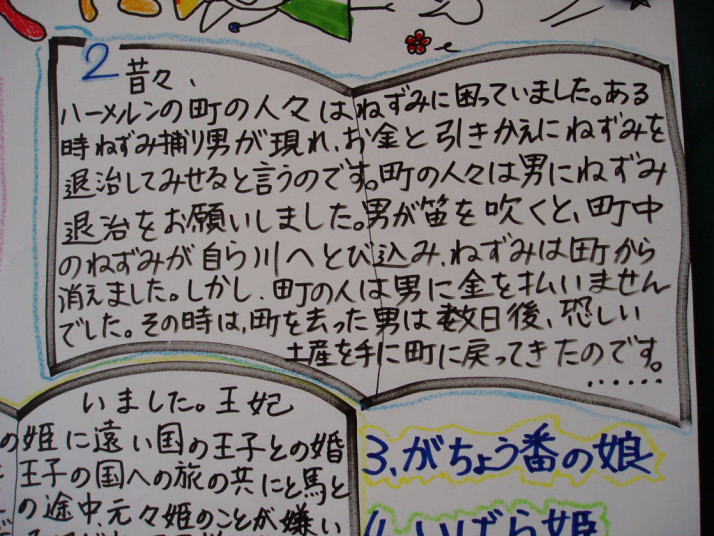 2 昔々、
ハーメルンの町の人々はねずみに困っていました。ある
時ねずみ捕り男が現れ、お金と引きかえにねずみを
退治してみせると言うのです。町の人々は男にねずみ
退治をお願いしました。男が笛を吹くと、町中
のねずみが自ら川へとび込み、ねずみは町から
消えました。しかし、町の人は男に金を払いません
でした。その時は、町を去った男は数日後、恐しい
土産を手に町に戻ってきたのです。
......
いました。王妃
の姫に遠い国の王子との婚
王子の国への旅の共にと馬と
の途中、元々姫のことが嫌い
3、がちょう番の娘
4、いばら姫